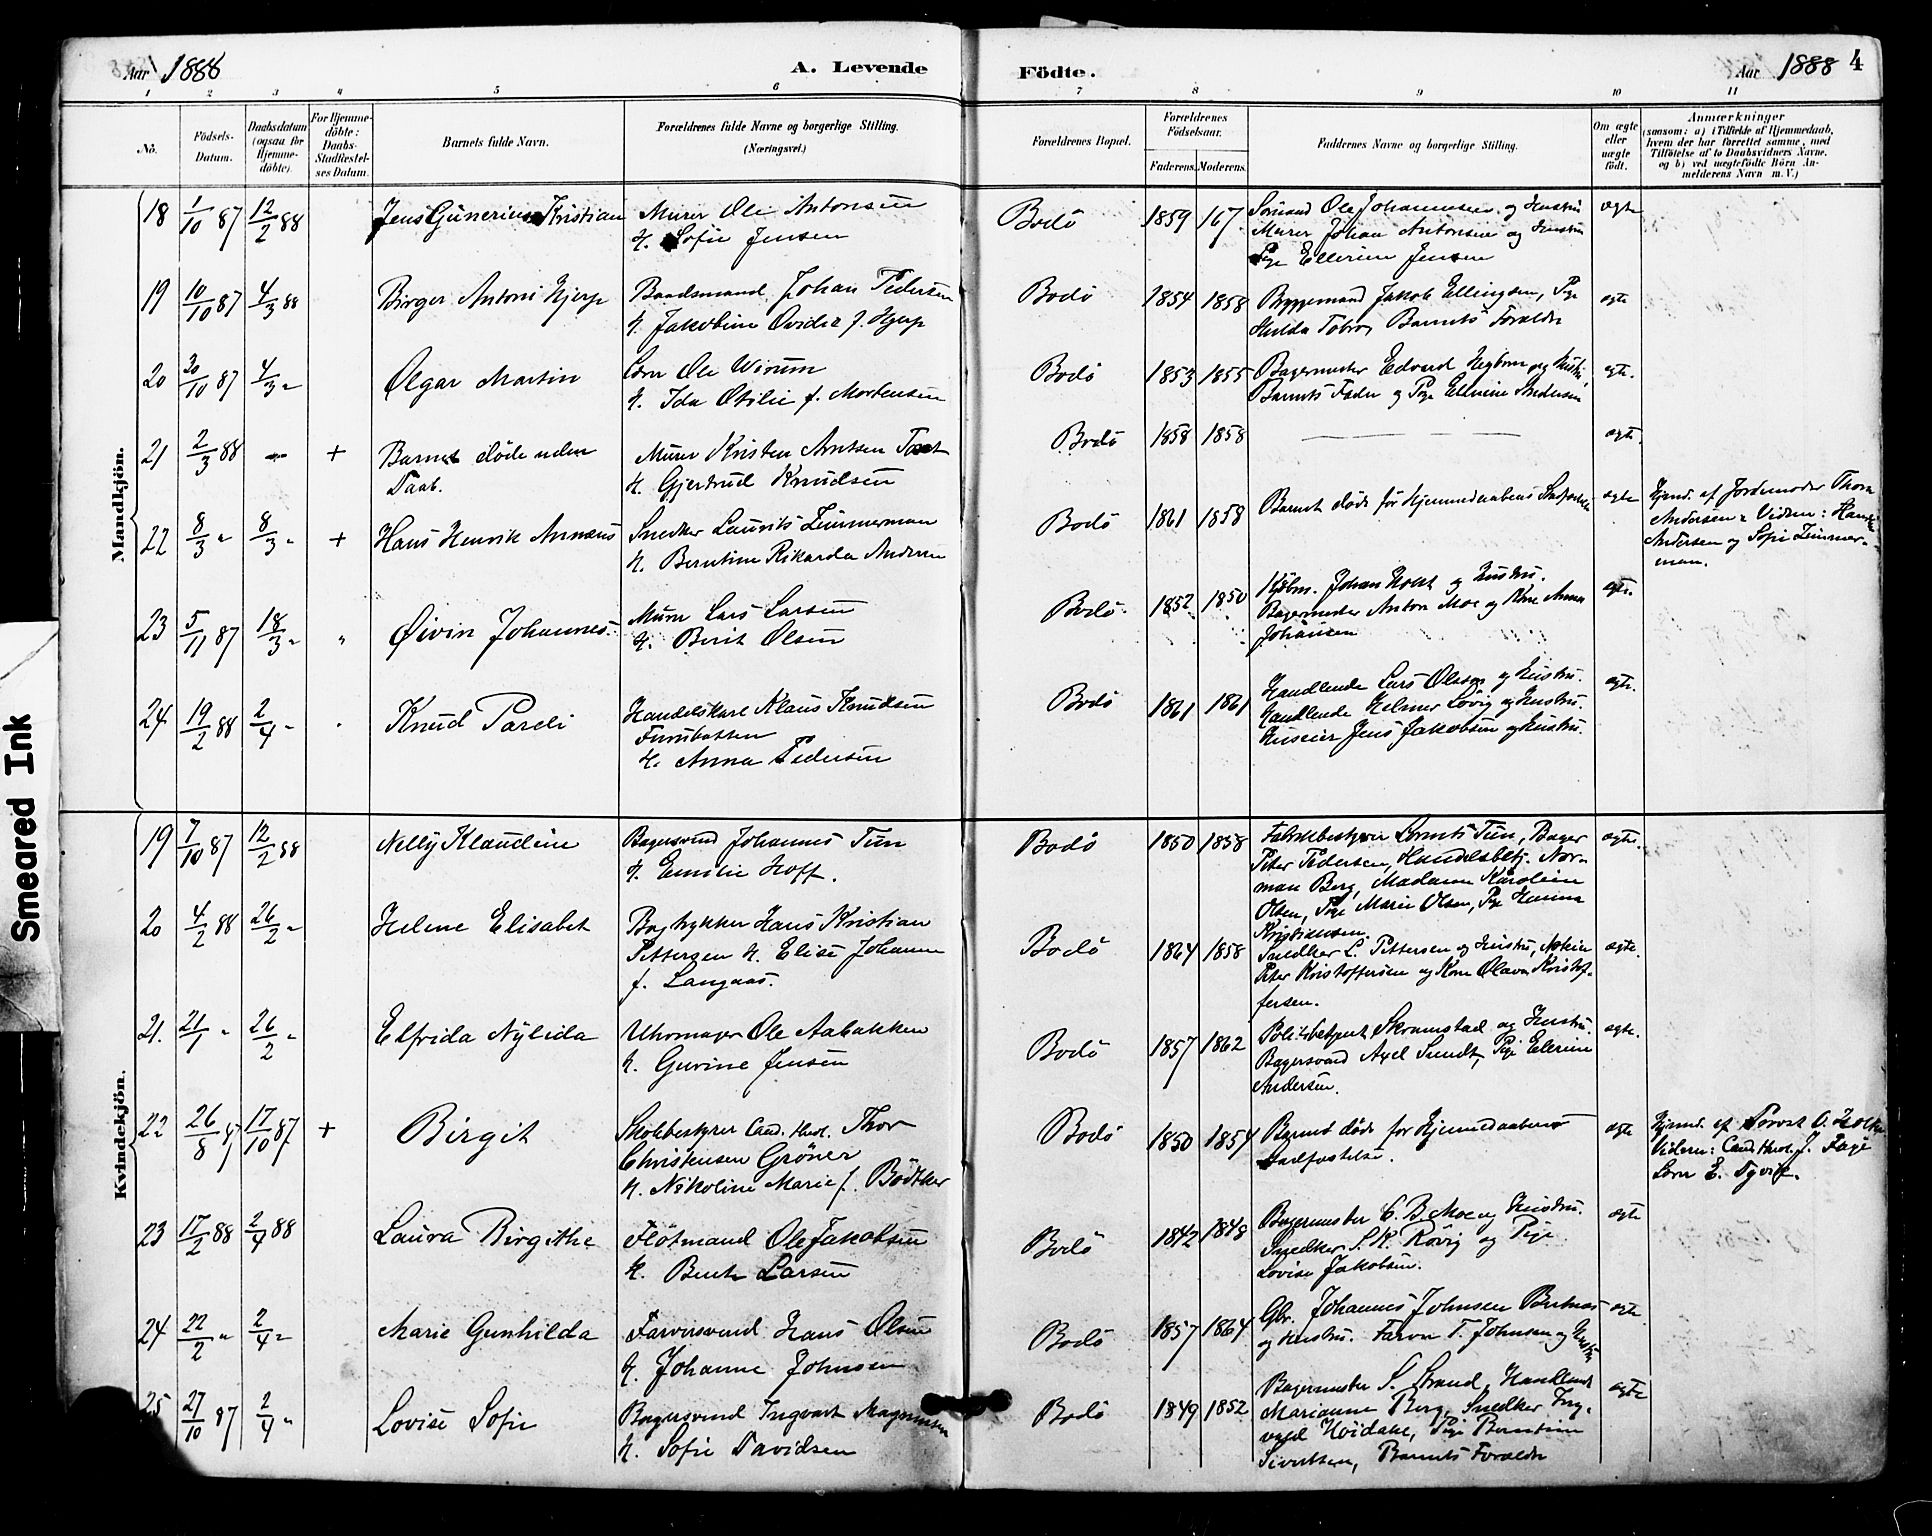 Aar 1888
A. Levende
Födte.
Aar 1888 4
1 2 3 4 5 6 7 8 9 10 11
No.
Födsels-
Datum.
Daabsdatum
(ogsaa for
Hjemme-
döbte).
For Hjemme-
döbte:
Daabs-
Stadfæstel-
ses Datum.
Barnets fulde Navn.
Forældrenes fulde Navne og borgerlige Stilling.
(Næringsvei.)
Forældrenes Bopæl.
Forældrenes
Födselsaar.
Faderens. Moderens.
Faddernes Navne og borgerlige Stilling.
Om ægte
eller
uægte
födt.
Anmærkninger
(saasom: a) i Tilfælde af Hjemmedaab,
hvem der har forrettet samme, med
Tilföielse af to Daabsvidners Navne,
og b) ved uægtefödte Börn An-
melderens Navn m. V.)
Mandkjön.
18 1/10 87 12/2 88 Jens Gunerius Kristian
Murer Ole Antonsen
H. Sofie Jensen
Bodö 1859 167
Sömand Ole Johannesen og Hustru
Murer Johan Antonsen og Hustru
Pige Ellerine Jensen
ægte
19 10/10 87 4/3 88 Birger Antoni Hjerp
Baadsmand Johan Pedersen
H. Jakobine Ovidia f. Hjerp
Bodö 1854 1858
Byggemand Jakob Ellingsen, Pge
Hulda Tobro, Barnets Forældre
ægte
20 30/10 87 4/3 " Olgar Martin
Lærer Ole Wirum
H. Ida Otilie f. Mortensen
Bodö 1853 1855
Bagermester Edvard og Hustru,
Barnets Fader og Pige Ellerine Andersen
ægte.
21 2/3 88 — + Barnet döde uden
Daab.
Murer Kristen Arntsen
H. Gjertrud Knudsen
Bodö 1858 1858 — ægte.
22 8/3 " 8/3 " + Hans Henrik Annæus
Snedker Laurits Zimmerman
H. Berntine Rikarda Andersen
Bodö 1861 1858
Barnet döde för Hjemmedaabens Stadfæstelse
ægte
Hjemd. af Jordemoder Thora
Andersen. Vidner: Hans
Andersen og Sofie Zimmer-
man.
23 5/11 87 18/3 " " Øivin Johannes.
Murer Lars Larsen
H. Berit Olsen
Bodö. 1852 1850
Kjöbm. Johan Koch og Hustru.
Bagermester Anton Moe og Kone Anna
Johansen
ægte.
24 19/2 88 2/4 " Knud Pareli
Handelskarl Klaus Knudsen
Furubotten
H. Anna Pedersen
Bodö 1861 1861
Handlende Lars Olsson og Hustru.
Handlende Helmer Lövig og Hustru.
Huseier Jens Jakobsen og Hustru.
ægte.
Kvindekjön.
19 7/10 87 12/2 88 Nelly Klaudine
Bagersvend Johannes Tun
H. Emilie Hoff.
Bodö 1850 1858
Fabrikbestyrer Lornts Tun, Bager
Peter Pedersen, Handelsbetj. Nor-
man Berg, Madame Karoline
Olsen, Pige Marie Olsen, Pge Hanna
Kristiansen
ægte.
20 4/2 88 26/2 " Helene Elisabet
Bogtrykker Hans Kristian
Pettersen H. Elise Johanne
f. Langaas.
Bodö 1864 1858
Snedker L. Pettersen og Hustru,
Peter Kristoffersen og Kone Olava Kristof-
fersen.
ægte.
21. 21/1 " 26/2 " Elfrida Nylida
Uhrmager Ole Aabakken
H. Gurine Jensen
Bodö 1857 1862
Politibetjent Skramstad og Hustru.
Bagersvend Axel Sundt, Pige Ellerine
Andersen.
ægte.
22 26/8 87 17/10 87 + Birgit
Skolebestyrer Cand. theol. Thor
Christensen Gröner
H. Nikoline Marie f. Bödtker
Bodö 1850 1854
Barnet döde for Hjemmedaabens
Stadfæstelse.
ægte
Hjemd. af Provst O. Holm
Vidner: Cand. theol. J. Faye
Lærer E. Tyvik.
23 17/2 88 2/4 88 Laura Birgithe
Flötmand Ole Jakobsen
H. Berte Larsen
Bodö 1842 1848
Bagermester C. B. Moe og Hustru.
Snedker S. K. Rövig og Pige
Lovise Jakobsen.
ægte
24 22/2 " 2/4 " Marie Gunhilda
Farversvend Hans Olsen
H. Johanne Johnsen
Bodö 1857 1864
Gbr. Johannes Johnsen
og Hustru. Farver T. Johnsen og Hustru
ægte.
25 27/10 87 2/4 " Lovise Sofie
Bagersvend Ingvart Magnussen
H. Sofie Davidsen
Bodö 1849 1852
Bagermester S. Strand, Handlende
Marianne Berg, Snedker Ing-
vald Höidahl, Pige Berntine
Sivertsen, Barnets Forældre
ægte
Smeared Ink